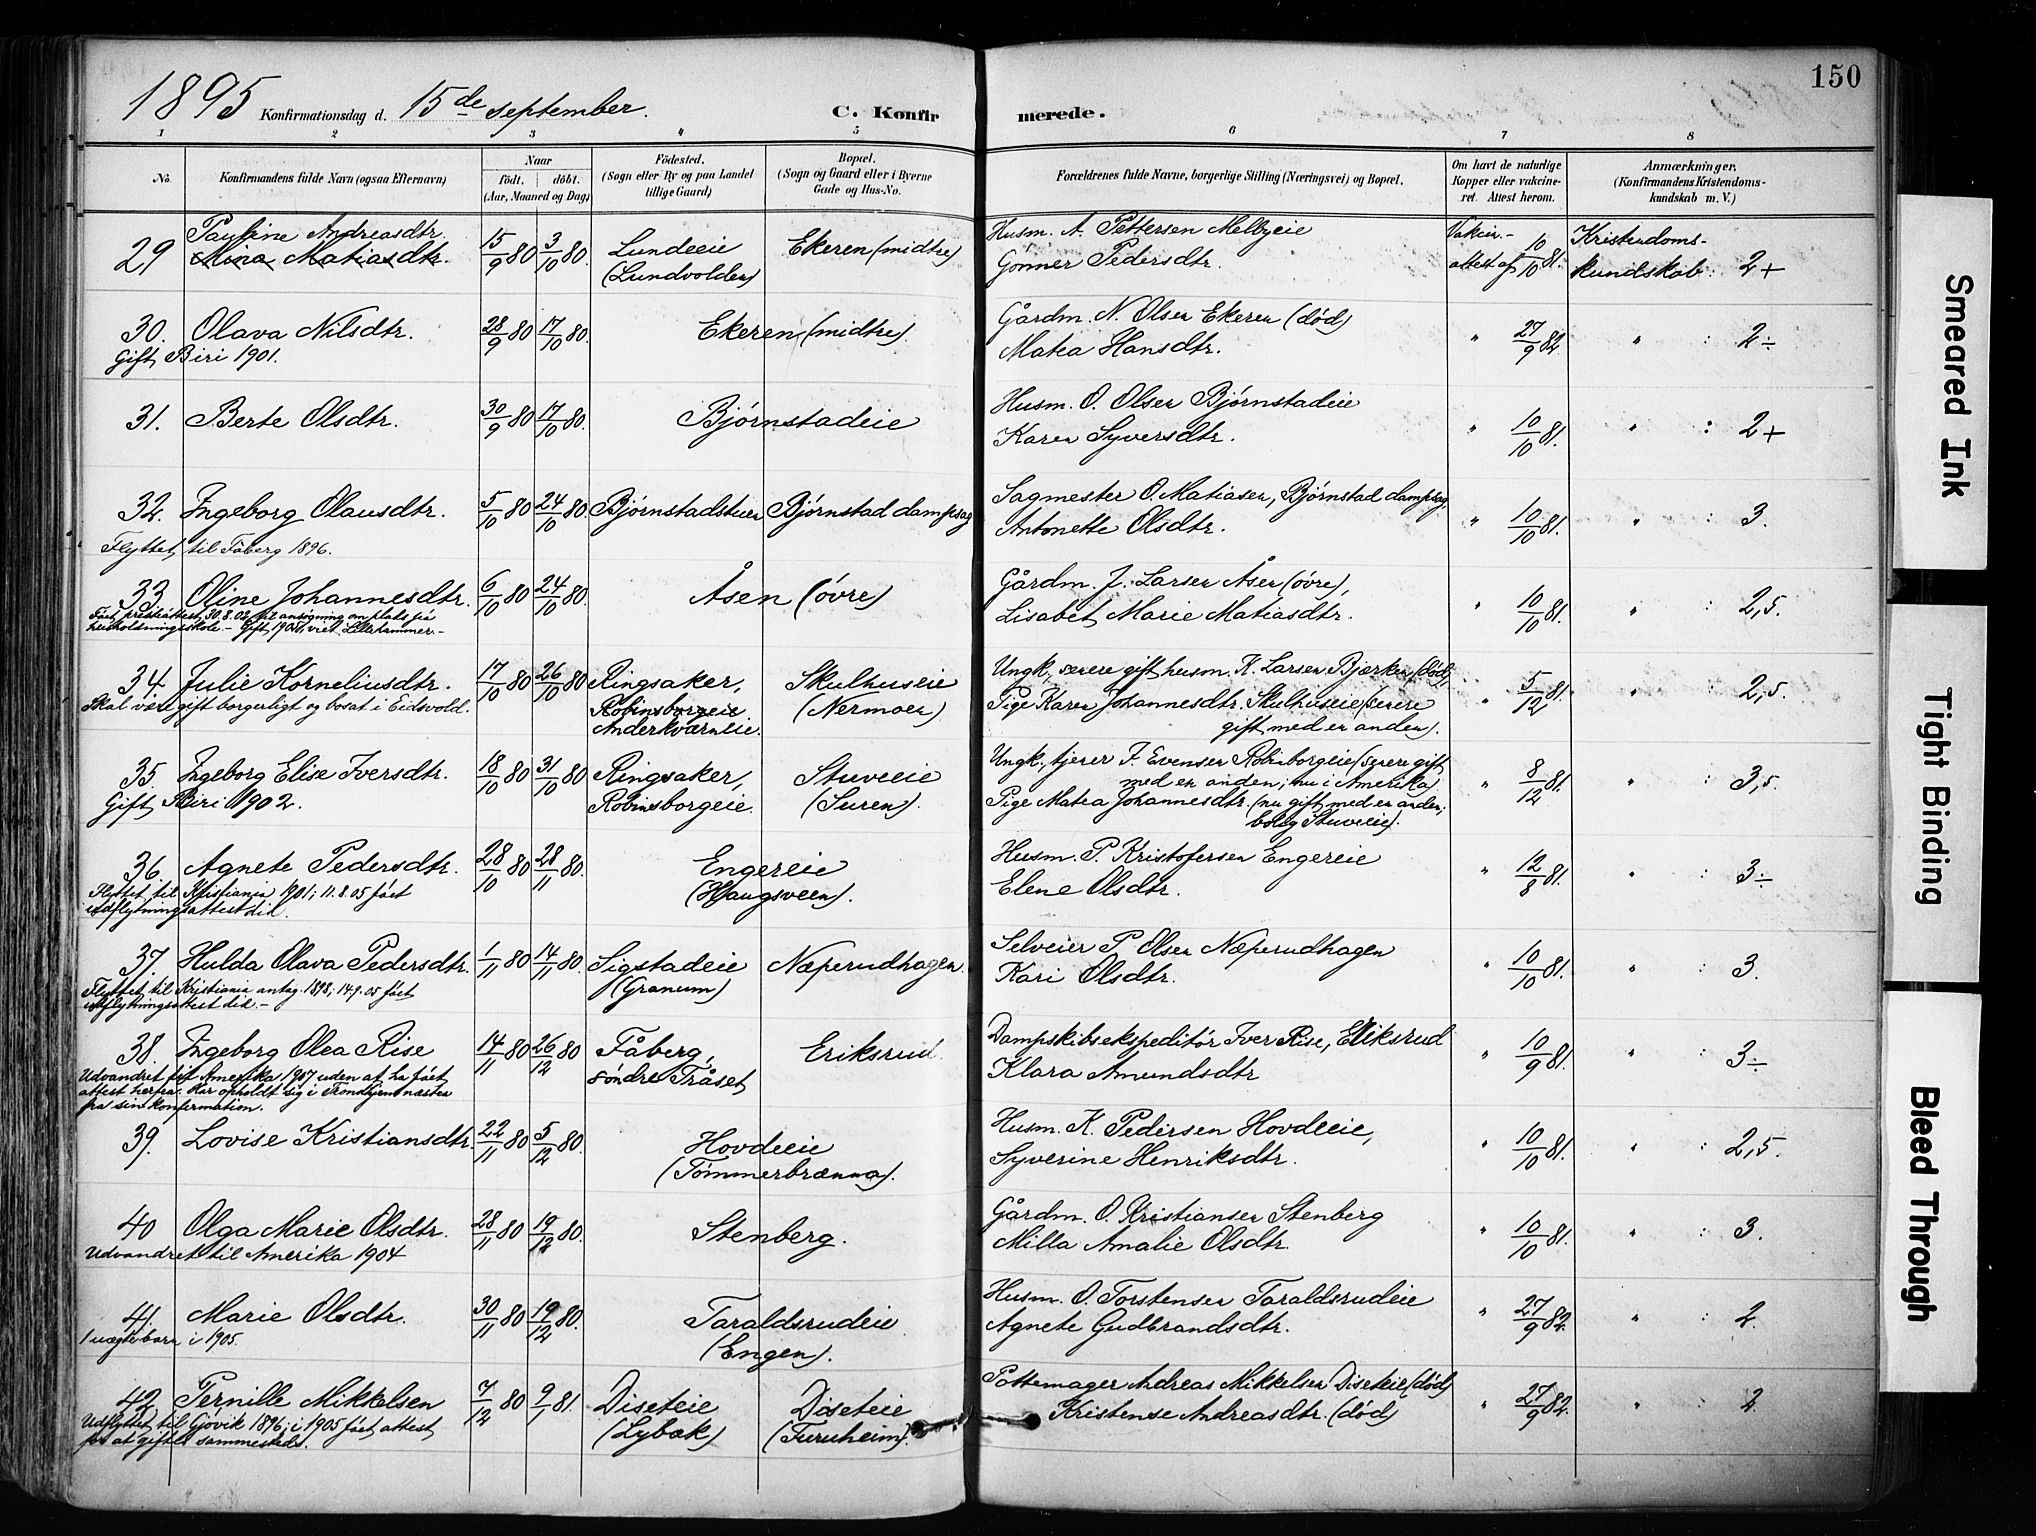 150
1895 Konfirmationsdag d. 15de september. C. Konfirmerede.
1 2 3 4 5 6 7 8
No. Konfirmandens fulde Navn (ogsaa Efternavn) Naar født. døbt. (Aar, Maaned og Dag) Födested. (Sogn eller By og paa Landet tillige Gaard) Bopæl. (Sogn og Gaard eller i Byerne Gade og Hus-No. Forældrenes fulde Navne, borgerlige Stilling (Næringsvei) og Bopæl. Om havt de naturlige Kopper eller vakcineret. Attest herom. Anmærkninger, (Konfirmandens Kristendomskundskab m. V.)
29 Pauline Andreasdtr. 15/9 80 3/10 80. Lundeeie Ekeren (midtre) Husm. A. Pettersen Melbyeie Vakcin.- Kristendoms-
Mina Matiasdtr. (Lundvolden) Gönner Pedersdtr. attest af 10/10 81. kundskab: 2+
30. Olava Nilsdtr. 28/9 80 17/10 80. Ekeren (midtre). Gårdm. N. Olsen Ekeren (død) " 27/9 82 " : 2÷
Gift, Biri 1901. Matea Hansdtr.
31. Berte Olsdtr. 30/9 80 17/10 80. Bjørnstadeie Husm. O. Olsen Bjørnstadeie
Karen Syversdtr. " 10/10 81. " : 2+
32. Ingeborg Olausdtr. 5/10 80 24/10 80. Bjørnstadstuen Bjørnstad dampsag Sagmester O. Matiasen, Bjørnstad dampsag,
Flyttet til Fåberg 1896. Antonette Olsdtr. " 10/10 81. " : 3.
33. Oline Johannesdtr. 6/10 80 24/10 80. Åsen (övre) Gårdm. J. Larsen Åsen (övre),
Fået præsteattest 30.8.02 til ansögning om plads på Lisabet Marie Matiasdtr. " 10/10 81. " : 2,5.
husholdningsskole.- Gift 1905, viet Lillehammer.-
34. Julie Korneliusdtr. 17/10 80 26/10 80 Ringsaker, Skulhuseie Ungk., senere gift husm. K. Larsen Bjærken (död),
Skal være gift borgerligt og bosat i Eidsvold. Robinsborgeie (Nermoen) Pige Karen Johannesdtr. Skulhuseie (senere " 5/12 81. " : 2,5.
Anderkværneie. gift med en anden).
35. Ingeborg Elise Iversdtr. 18/10 80 31/10 80 Ringsaker, Stuveeie Ungk., tjener I. Evensen Robinsborgeie (senere gift
Gift Biri 1902. Robinsborgeie. (Suren). med en anden; nu i Amerika) " 8/12 81. " : 3,5.
Pige Matea Johannesdtr. (nu gift med en anden;
bolig Stuveeie).
36. Agnete Pedersdtr. 28/10 80 28/11 80. Engereie Husm. P. Kristofersen Engereie " 12/8 81. " : 3÷
Flyttet til Kristiania 1901; 11.8.05 fået (Haugsveen). Elene Olsdtr.
udflytningsattest did.
37. Hulda Olava Pedersdtr. 1/11 80 14/11 80. Sigstadeie Næperudhagen. Selveier P. Olsen Næperudhagen
Flyttet til Kristiania antag. 1898; 14.9.05 fået (Granum) Kari Olsdtr. " 10/10 81. " : 3.
udflytningsattest did.-
38. Ingeborg Olea Rise 14/11 80 26/12 80 Fåberg, Eriksrud Dampskibsekspeditör Iver Rise, Eriksrud
Udvandret til Amerika 1907 uden at ha fået söndre Tråset Klara Amundsdtr " 10/9 81. " : 3÷
attest herfra. Har opholdt sig i Trondhjem næsten
fra sin konfirmation.
39. Lovise Kristiansdtr. 22/11 80 5/12 80. Hovdeeie Husm. K. Pedersen Hovdeeie,
(Tömmerbrænna). Syverine Henriksdtr. " 10/10 81. " : 2,5.
40 Olga Marie Olsdtr. 28/11 80 19/12 80. Stenberg. Gårdm. O. Kristiansen Stenberg
Udvandret til Amerika 1904 Milla Amalie Olsdtr. " 10/10 81. " : 3.
41. Marie Olsdtr. 30/11 80 19/12 80. Taraldsrudeie Husm. O. Torstensen Taraldsrudeie
1 uægte barn i 1905. (Engen). Agnete Gudbrandsdtr. " 27/9 82. " : 2.
42. Pernille Mikkelsen 7/12 80 9/1 81. Diseteie Diseteie Pottemager Andreas Mikkelsen Diseteie (död)
Udflyttet til Gjøvik 1896; i 1905 fået attest (Lybæk) (Furuheim). Kristense Andreasdtr. (död) " 27/9 82. " : 2.
for at giftes sammesteds.
Smeared Ink
Tight Binding
Bleed Through